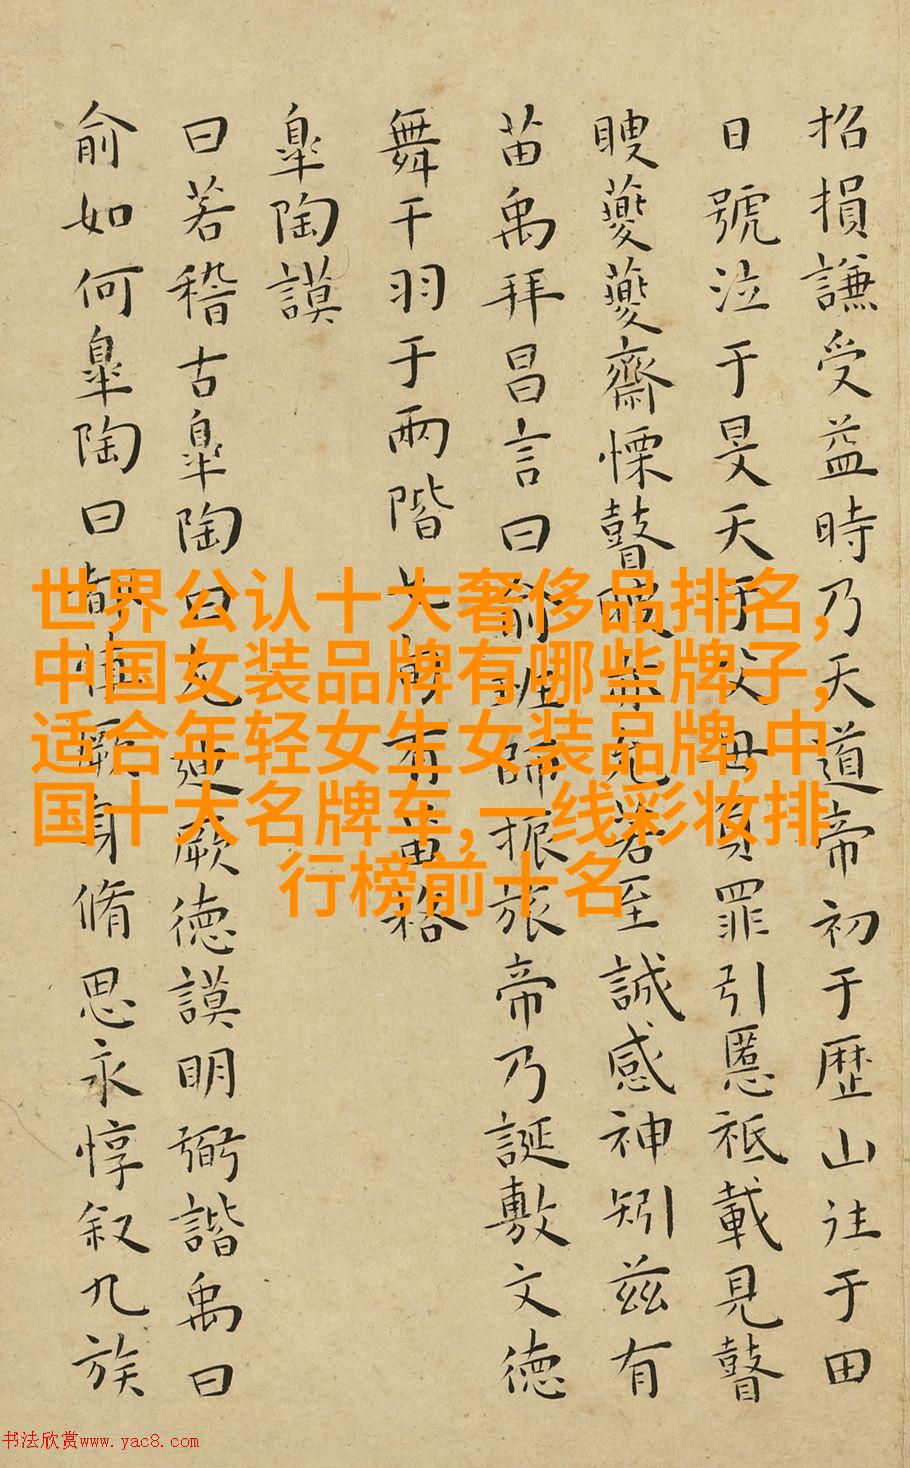 招損謙受益時乃天道帝初于歷山往于田
日號泣于旻天于父母負罪引慝祗載見瞽
瞍夔夔齋慄瞽瞍亦允若至誠感神矧兹有
苗禹拜昌言曰俞班師振旅帝乃誕敷文德
舞干羽于兩階七旬有苗格
皋陶謨
曰若稽古皋陶曰允迪厥德謨明弼諧禹曰
俞如何皋陶曰都慎厥身脩思永惇叙九族
世界公认十大奢侈品排名,
中国女装品牌有哪些牌子,
适合年轻女生女装品牌,中
国十大名牌车,一线彩妆排
行榜前十名
书法欣赏www.yac8.com